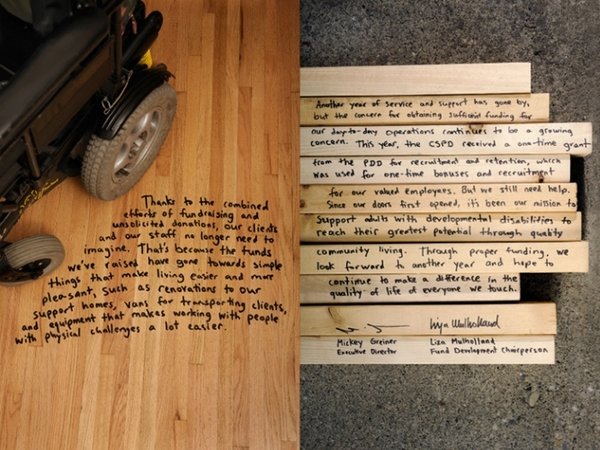 Thanks to the combined
efforts of fundraising and
unsolicited donations, our clients
and our staff no longer need to
imagine. That's because the funds
we've raised have gone towards simple
things that make living easier and more
pleasant, such as renovations to our
support homes, vans for transporting clients,
and equipment that makes working with people
with physical challenges a lot easier.
Another year of service and support has gone by,
but the concern for obtaining sufficient funding for
our day-to-day operations continues to be a growing
concern. This year, the CSPD received a one-time grant
from the PDD for recruitment and retention, which
was used for one-time bonuses and recruitment
for our valued employees. But we still need help.
Since our doors first opened, it's been our mission to
support adults with developmental disabilities to
reach their greatest potential through quality
community living. Through proper funding, we
look forward to another year and hope to
continue to make a difference in the
quality of life of everyone we touch.
Liza Mulholland
Mickey Greiner Liza Mulholland
Executive Director Fund Development Chairperson